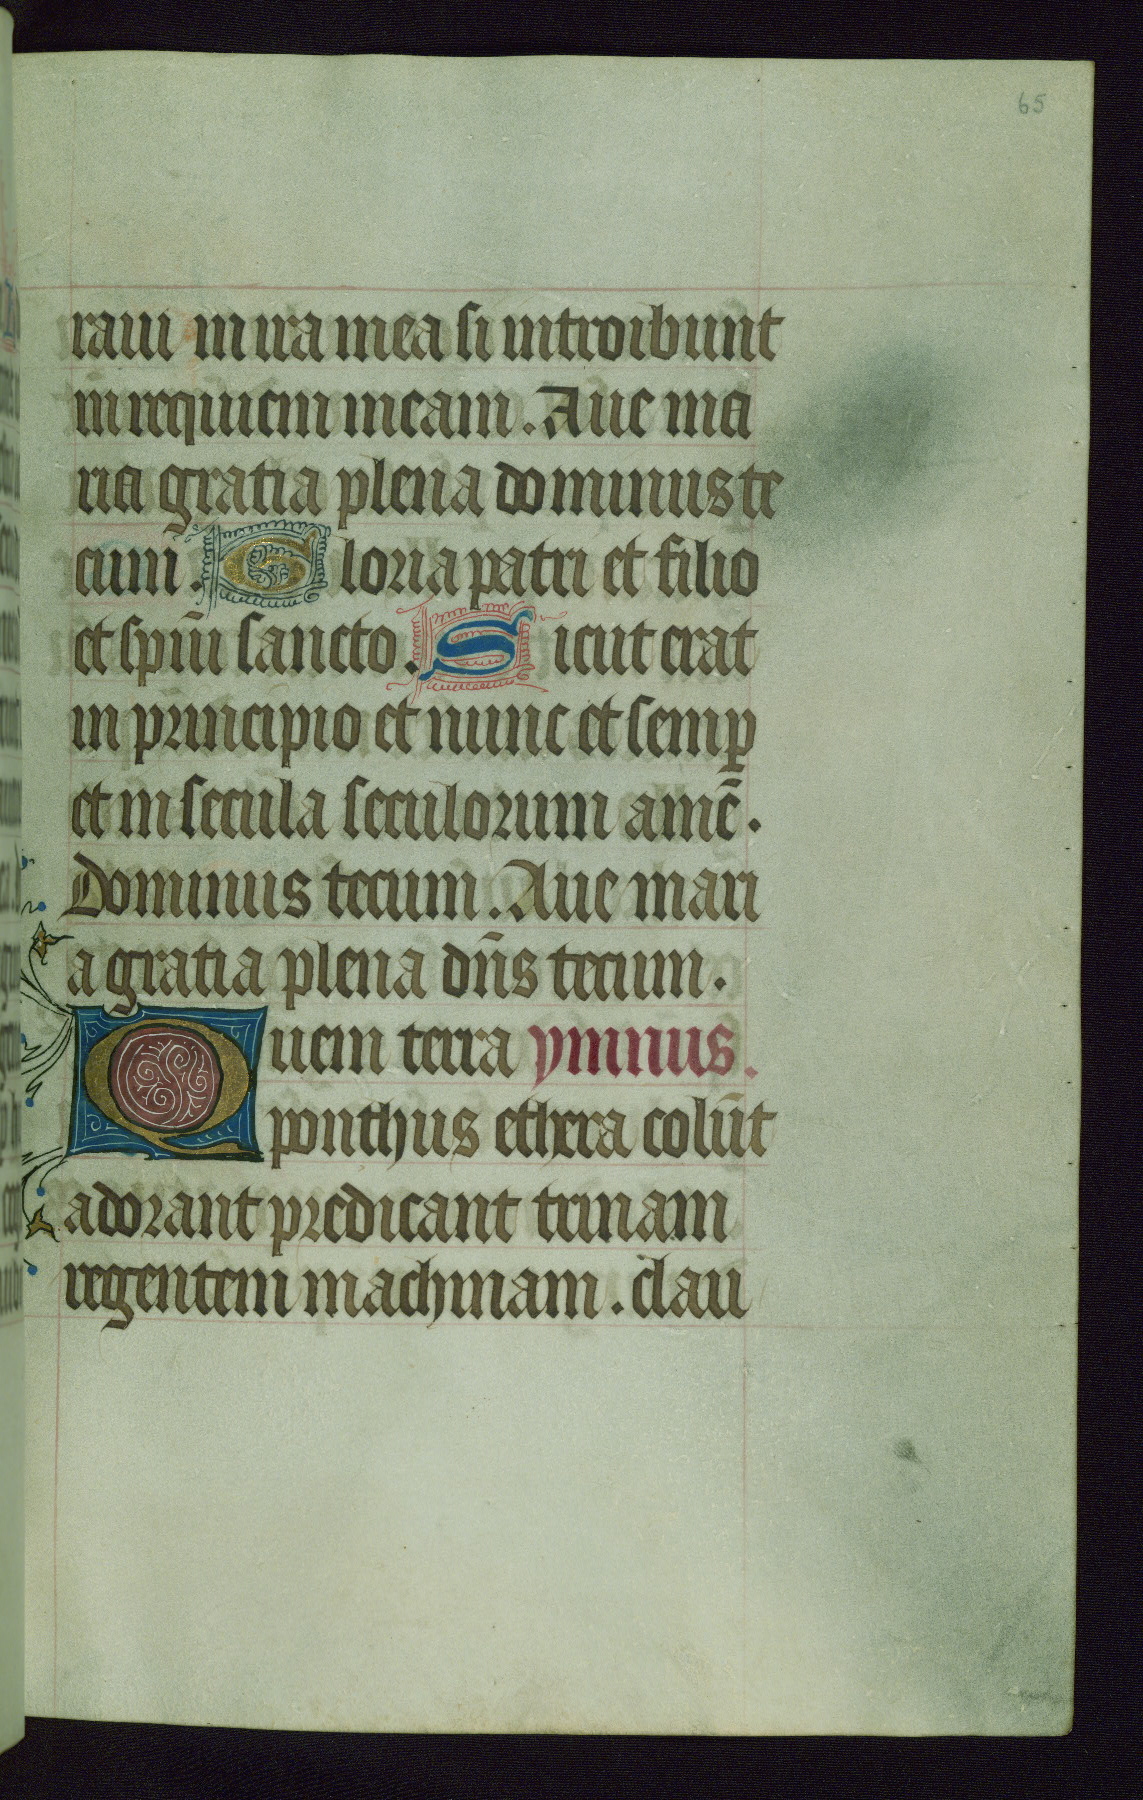 65
raui in ira mea si introibunt
in requiem meam. Aue ma
ria gratia plena dominus te
cum. Gloria patri et filio
et spiũi sancto. Sicut erat
in principio et nunc et semp̱
et in secula seculorum amē.
Dominus tecum. Aue mari
a gratia plena dn̄s tecum.
Quem terra ymnus.
ponthus ethera colūt
adorant predicant trinam
regentem machinam. clau